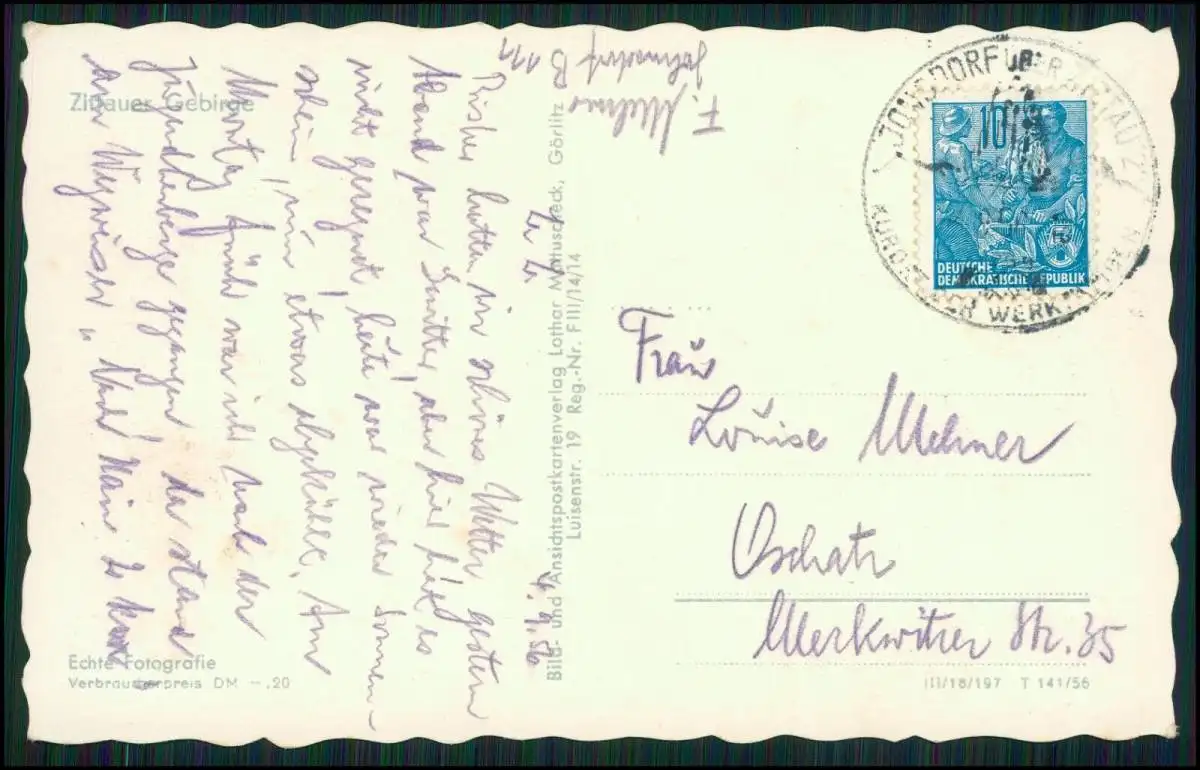 Zittauer Gebirge
F. Mehner
Johnsdorf B 111
L. L.
4.9.56
Bisher hatten wir schönes Wetter, gestern
Abend war Gewitter, aber hier hat es
nicht geregnet, heute war wieder Sonnen-
schein, nur etwas abgekühlt. Am
Montag früh war ich nach der
Jugendherberge gegangen, da stand
am Wegweiser „Nach Hain 20
Echte Fotografie
Verbraucherpreis DM -,20
Bild- und Ansichtspostkartenverlag Lothar Mattuscheck, Görlitz
Luisenstr. 19 Reg.-Nr. F III/14/14
10
DEUTSCHE
DEMOKRATISCHE REPUBLIK
JONSDORF ÜBER ZITTAU 2
KURORT WERK
Frau
Louise Mehner
Oschatz
Merkwitzer Str. 35
III/18/197 T 141/56